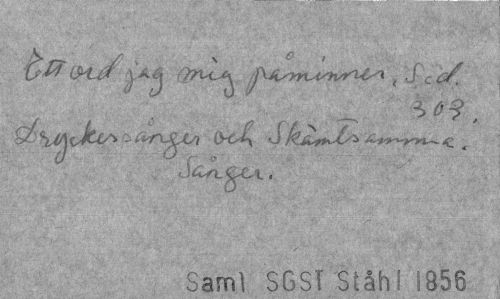 Ett ord jag mig påminner, Sid.
303.
Dryckessånger och Skämtsamma.
Sånger.
Saml SGST Ståhl 1856